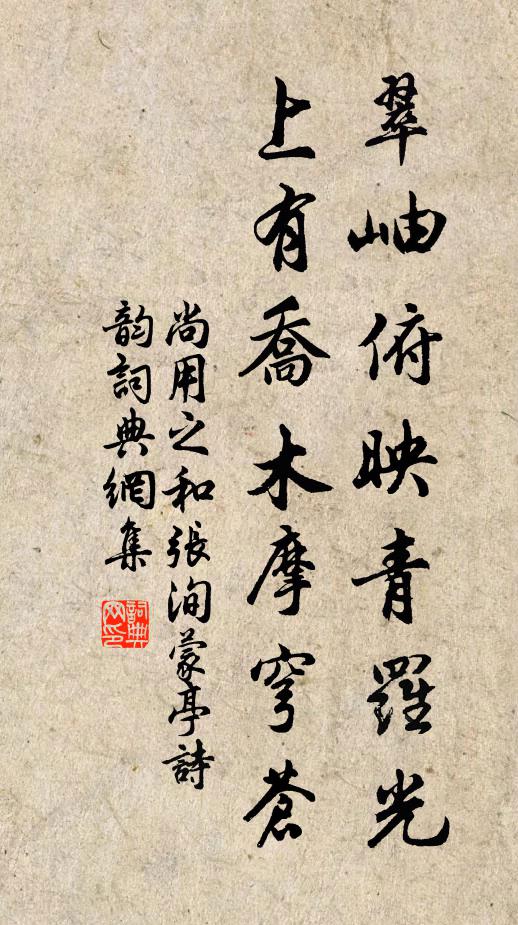 翠岫俯映青羅光
上有喬木摩穹蒼
尚用之和張洵蒙亭詩
韵詞典網集
詞典
网印